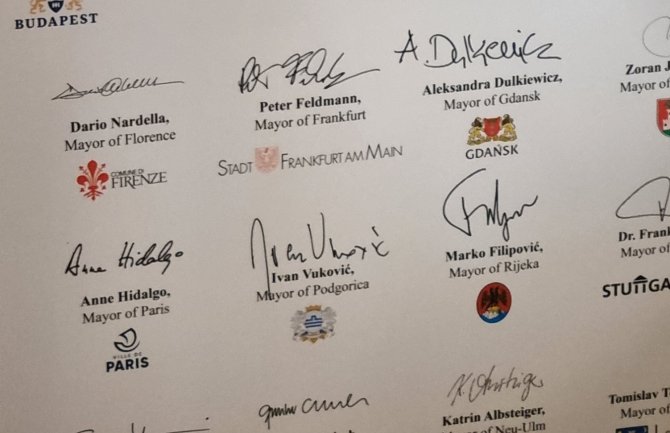 BUDAPEST
Dario Nardella,
Mayor of Florence
COMUNE DI
FIRENZE
Peter Feldmann,
Mayor of Frankfurt
STADT FRANKFURT AM MAIN
A. Dulkiewicz
Aleksandra Dulkiewicz,
Mayor of Gdansk
GDAŃSK
Zoran J
Mayor of
Anne Hidalgo
Anne Hidalgo,
Mayor of Paris
VILLE DE
PARIS
Ivan Vuković
Ivan Vuković,
Mayor of Podgorica
Marko Filipović,
Mayor of Rijeka
Dr. Frank
Mayor of
STUTTGA
K. Albsteiger
Katrin Albsteiger,
Mayor of Neu-Ulm
Tomislav T
Mayor of